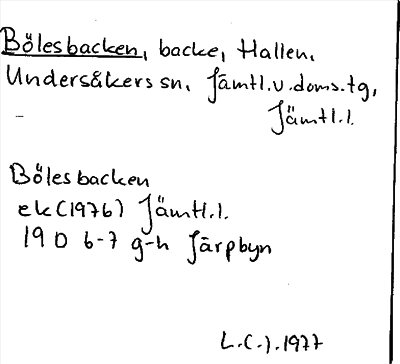 Bölesbacken, backe, Hallen,
Undersåkers sn, Jämtl.v.doms.tg,
Jämtl.l.
Bölesbacken
ek(1976) Jämtl.l.
19 D 6-7 g-h Järpbyn
L.C.J.1977